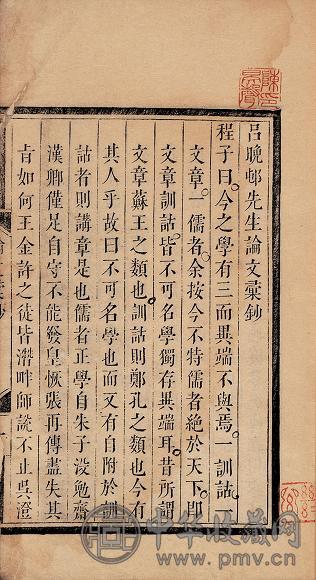 呂晚邨先生論文彙鈔
程子曰今之學有三而異端不與焉一訓詁一
文章一儒者余按今不特儒者絕於天下即
文章訓詁皆不可名學獨存異端耳昔所謂
文章蘇王之類也訓詁則鄭孔之類也今有
其人乎故曰不可名學也而又有自附於訓
詁者則講章是也儒者正學自朱子沒勉齋
漢卿僅足自守不能發皇恢張再傳盡失其
旨如何王金許之徒皆潛畔師說不止吳澄
中华收藏网
www.pmv.cn